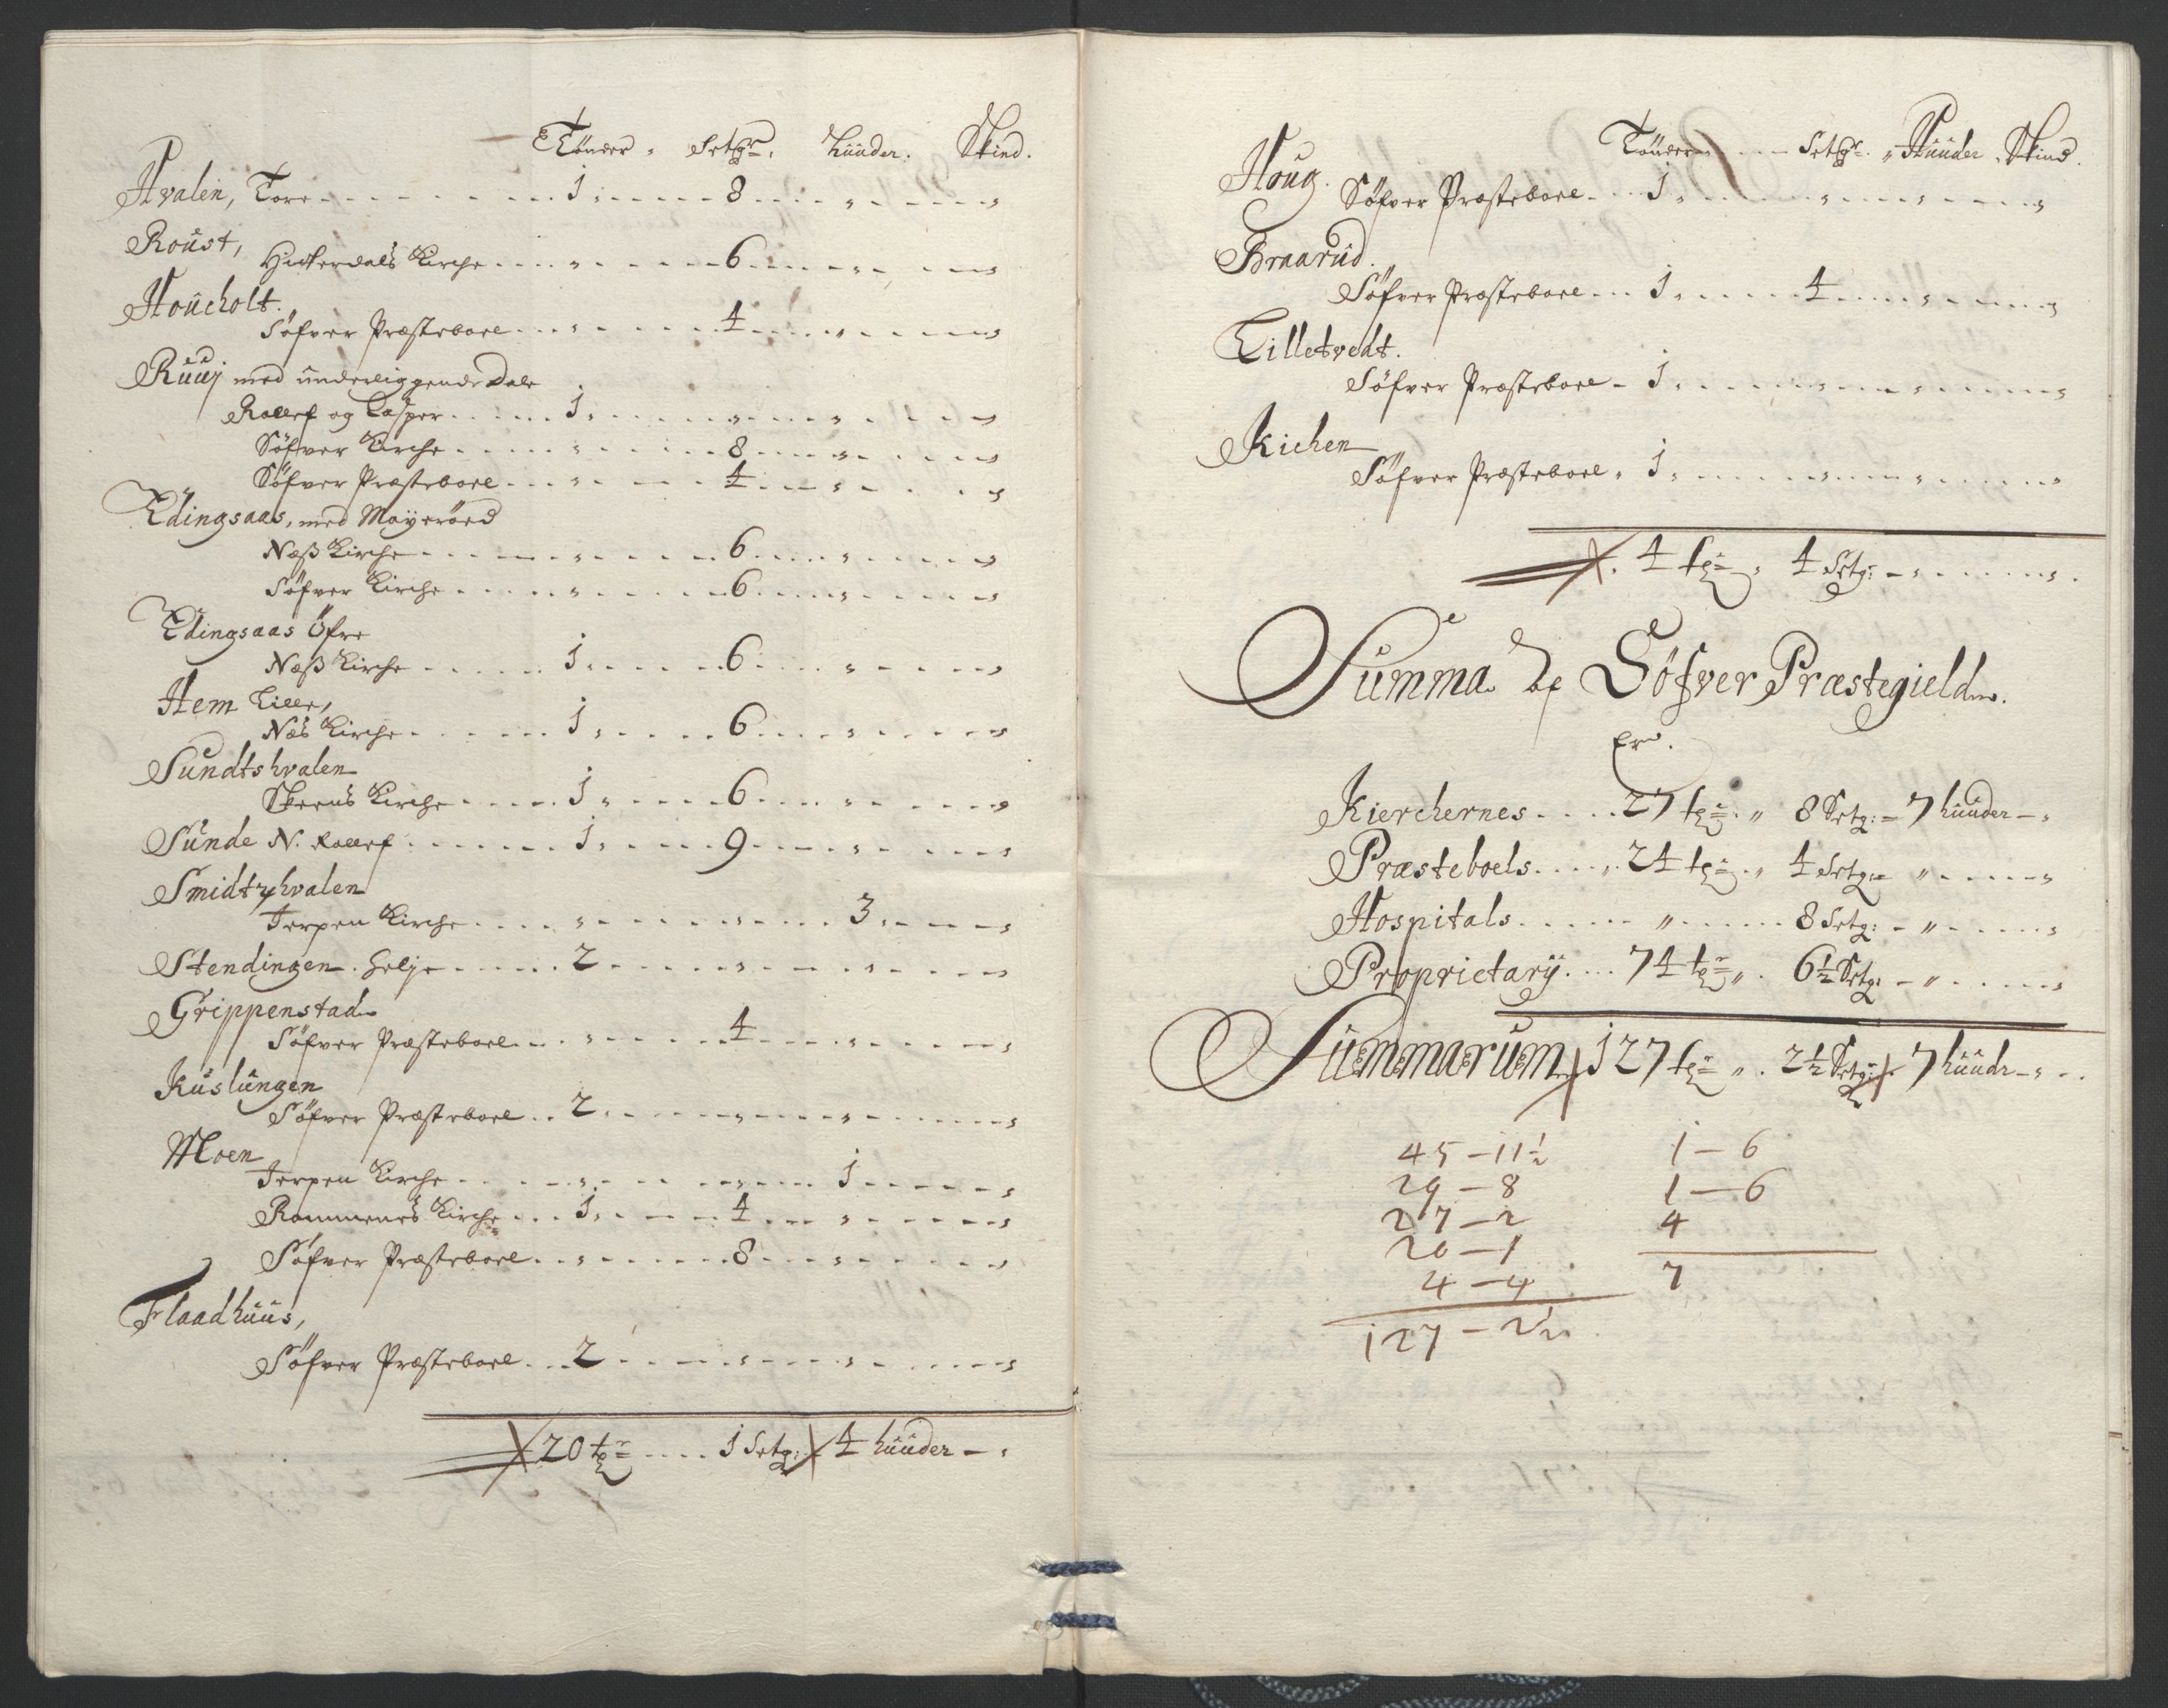 Tönder, Setgr, Huuder. Skind.
Hvalen, Tore 1, 8 " "
Roust,
Hitterdals Kirche " 6 " "
Houcholt.
Söfver Præsteboel " 4 " "
Ruuj med underliggende Dale
Rollef og Casper 1, " " "
Söfver Kirche " 8 " "
Söfver Præsteboel " 4 " "
Edingsaas, med Mayeröed
Næß Kirche " 6 " "
Söfver Kirche " 6 " "
Edingsaas Öfre
Næß Kirche 1, 6 " "
Hem Lille,
Næs Kirche 1, 6 " "
Sundtshvalen
Skeens Kirche 1, 6 " "
Sunde N. Rollef 1, 9 " "
Smidtzhvalen
Jerpen Kirche " " 3, "
Stendingen. Helje 2 " " "
Grippenstad
Söfver Præsteboel " 4 " "
Kuslungen
Söfver Præsteboel 2, " " "
Moen
Jerpen Kirche " " 1 "
Rommenes Kirche 1, 4 " "
Söfver Præsteboel " 8 " "
Flaadhuus,
Söfver Præsteboel 2 " " "
20 tr 1 Setg: 4 huuder - "
Tönder Setgr. " Huuder. Skind.
Houg.
Söfver Præsteboel 1, " " "
Braarud.
Söfver Præsteboel 1, 4 " "
Lilletvedt.
Söfver Præsteboel 1, " " "
Kichen
Söfver Præsteboel, 1, " " "
4 tr " 4 Setg: " "
Summa af Söfver Præstegield.
Er.
Kierchernes 27 tr " 8 Setg: 7 huuder "
Præsteboels 24 tr " 4 Setg: " "
Hospitals " 8 Setg: " "
Proprietarij 74 tr " 6½ Setg: " "
Summarum 127 tr " 2½ Setg: 7 huudr "
45 - 11½ 1 - 6
29 - 8 1 - 6
27 - 2 4
20 - 1
4 - 4 7
127 - 2½